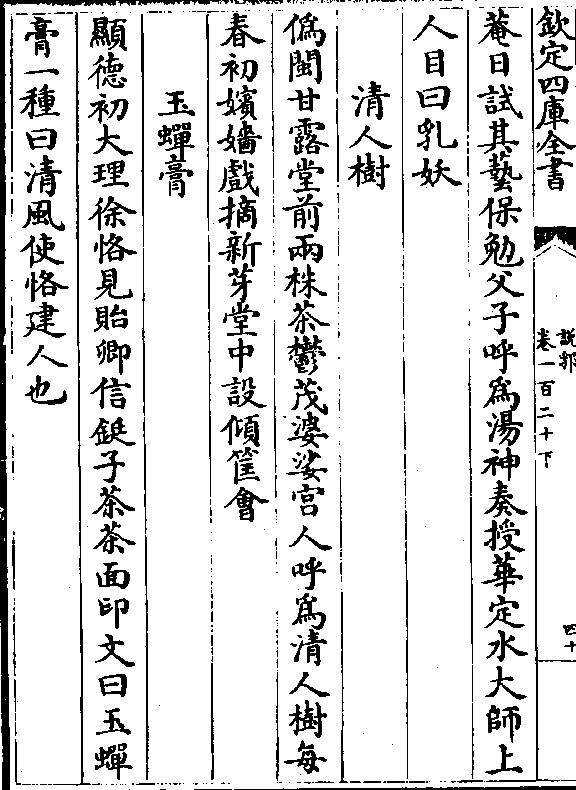 欽定四庫全書
說郛
卷一百二十下
四十
菴日試其藝保勉父子呼爲湯神奏授華定水大師上
人目曰乳妖
清人樹
僞閩甘露堂前兩株茶鬱茂婆娑宫人呼爲清人樹每
春初嬪嬙戲摘新芽堂中設傾筐會
玉蟬膏
顯德初大理徐恪見貽卿信鋌子茶茶面印文曰玉蟬
膏一種曰清風使恪建人也